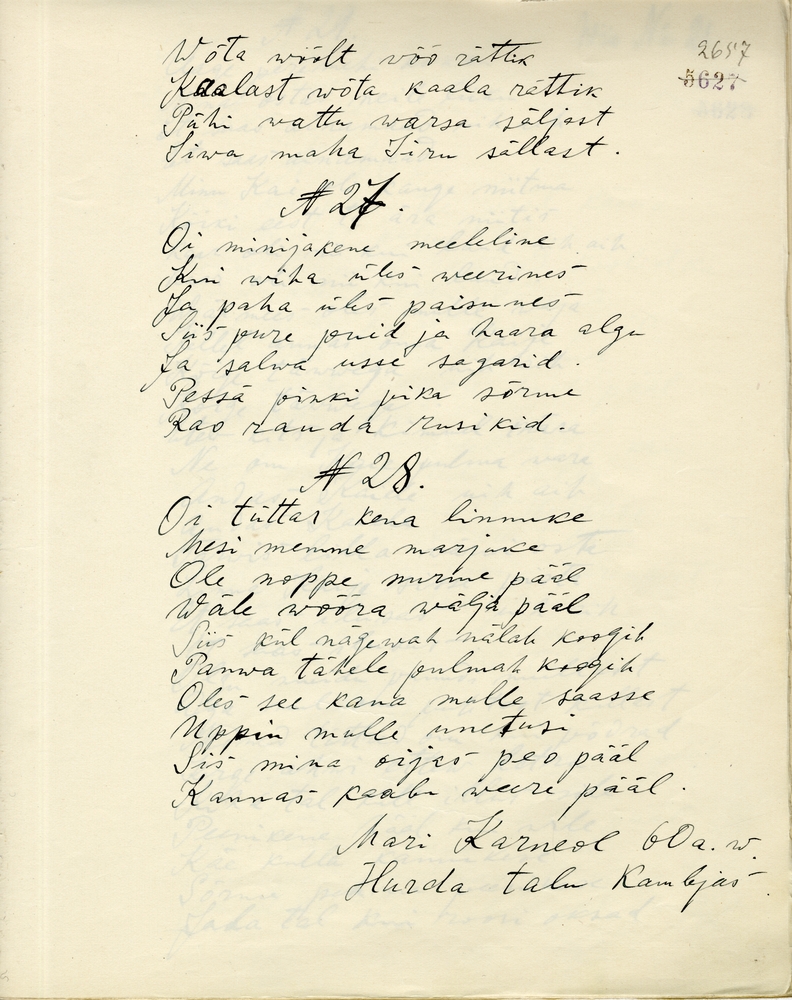 2657
5627
Wõta wöölt vöö rättik
Kaalast wõta kaala rättik
Pähi wattu warsa säljast
Siwa maha Siru sällast.
№ 27.
Oi minijakene meeleline
Kui wiha üles weerines
Ja paha üles paisunes
Siis pure puid ja haara algu
Ja salwa usse sagarid.
Pessä pinki pika sõrme
Rao rauda rusikid.
№ 28.
Oi tüttar kena linnuke
Mesi memme marjuke
Ole noppe nurme pääl
Wäle wööra wälja pääl
Siis kül nägewah nälah koogih
Panwa tähele pulmah koogih
Oles see kana mulle saasse
Uppin mulle unetusi
Siis mina oijas peo pääl
Kannas kaabu weere pääl.
Mari Karneol 60 a. w.
Hurda talu Kambjas